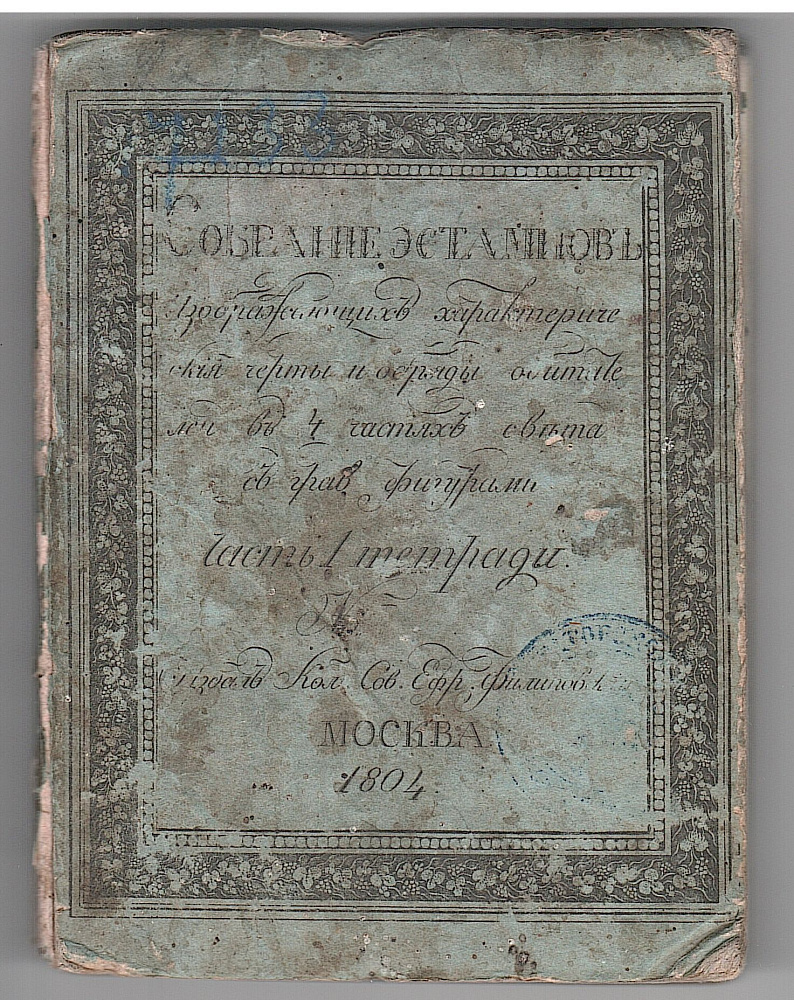 7133
СОБРАНІЕ ЭСТАМПОВЪ
изображающихъ характериче
скія черты и обряды обитате
лей въ 4 частяхъ свѣта
съ грав. фигурами
Часть 1 тетради.
Издалъ Кол. Сов. Ефр. Филипов
МОСКВА
1804